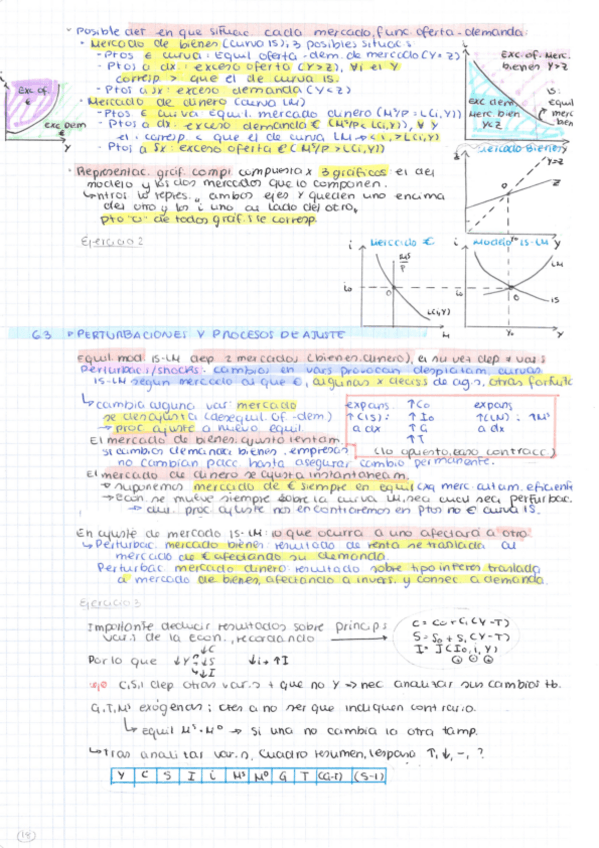 Posible det en que situac. cada mercado, func oferta-demanda:
• Mercado de bienes (curva IS); 3 posibles situac.s
- Ptos ∈ curva: Equil oferta-dem. de mercado (Y=Z)
- Ptos a dx: exceso oferta (Y>Z), ∀ i el Y
corresp > que el de curva IS.
- Ptos a sx: exceso demanda (Y<Z)
• Mercado de dinero (curva LM)
- Ptos ∈ curva: equil. mercado dinero (M/P = L(i,Y))
- Ptos a dx: exceso demanda € (M/P<L(i,Y)), ∀ Y
el i corresp < que el de curva LM
- Ptos a sx: exceso oferta € (M/P>L(i,Y))
Exc of.
€
exc dem
€
Y
Exc. of. Merc.
bienes Y>Z
exc dem
Merc. bien
Y<Z
IS:
equil
merc
bien
• Representac. gráf. compl compuesta x 3 gráficos el del
modelo y los dos mercados que lo componen.
ambos ejes Y queden uno encima
del otro y los i uno al lado del otro,
pto "0" de todos gráf.s le corresp.
Mercado Bienes
Y=Z
Z
0
Y
Ejercicio 2
i
Mercado €
Mˢ
P
i₀
0
L(i,Y)
M
i
Modelo IS-LM
Y
LM
i₀
0
IS
Y₀
Y
6.3 PERTURBACIONES Y PROCESOS DE AJUSTE
Equil. mod. IS-LM dep 2 mercados (bienes, dinero), el su vez dep x var.s
Perturbac.i/shocks: cambios en vars provocan desplazam. curvas
IS-LM según mercado al que €, algunas x decis.s de ag.s, otras fortuita
↳ cambia alguna var: mercado
se desajusta (desequil. of-dem)
→ proc. ajuste a nuevo equil.
expans.
↑(IS):
a dx
↑C₀
↑I₀
↑G
↑T
expans
↑(LM): ↑Mˢ
a dx
(lo opuesto, caso contracc)
El mercado de bienes: ajusta lentam.
si cambios demanda bienes, empresas
no cambian pacc. hasta asegurar cambio permanente.
El mercado de dinero se ajusta instantáneam.
→ suponemos mercado de € siempre en equil merc. altam. eficiente
→ econ. se mueve siempre sobre la curva LM, sea cual sea perturbac.
→ proc. ajuste nos encontraremos en ptos no ∈ curva IS.
En ajuste de mercado IS-LM: lo que ocurra a uno afectará a otro.
↳ Perturbac. mercado bienes: resultado de renta se traslada al
mercado de € afectando su demanda.
Perturbac. mercado dinero: resultado sobre tipo interés traslada
a mercado de bienes, afectando a invers. y consec. a demanda.
Ejercicio 3
Importante deducir resultados sobre princip.s
var.s de la econ., recordando →
C = C₀ + C₁(Y-T)
S = S₀ + S₁(Y-T)
I = I(I₀, i, Y)
Por lo que ↓Y ↓C ↓S ↓I ↓i → ↑I
ojo C, S, I dep otras var.s + que no Y → nec analizar sus cambios tb.
G, T, Mˢ exógenas; ctes a no ser que indiquen contrario.
↳ equil Mˢ=Mᴰ → si una no cambia la otra tamp.
↳ Tras analizar var.s, cuadro resumen, respond ↑, ↓, -, ?
Y C S I i Mˢ Mᴰ G T (G-T) (S-I)
18